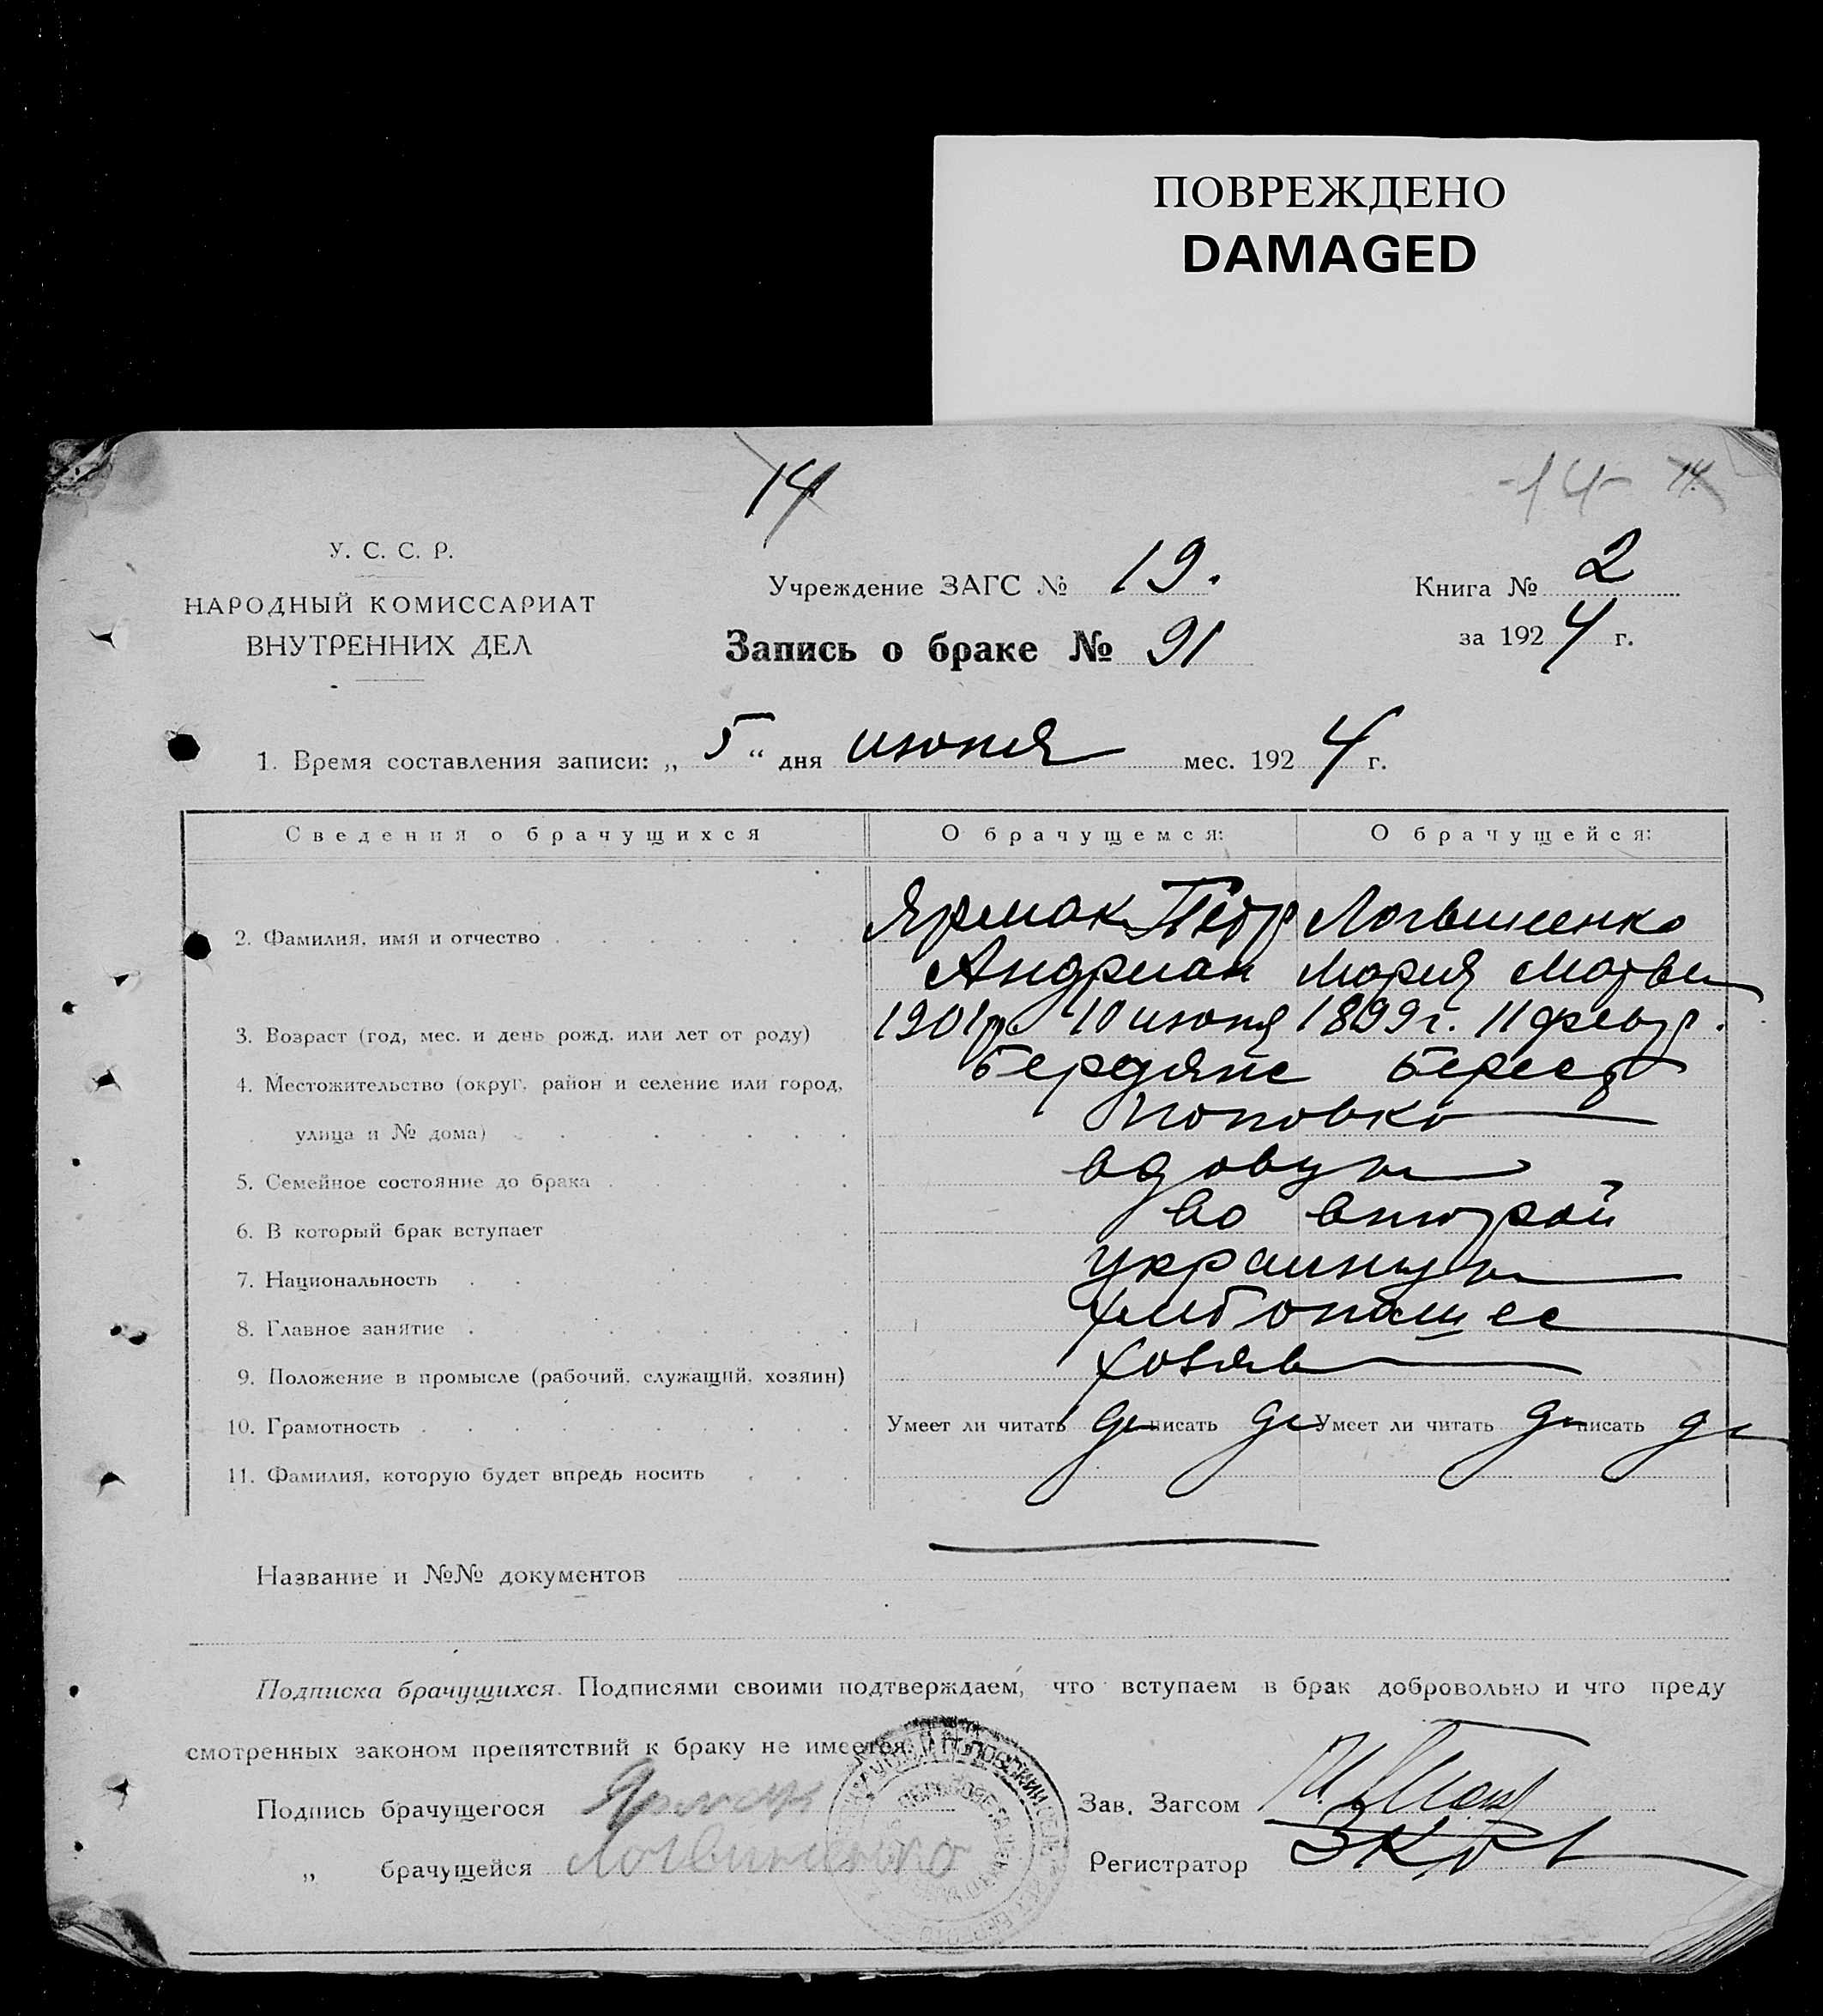 ПОВРЕЖДЕНО
DAMAGED
14
-14- 14
У. С. С. Р.
НАРОДНЫЙ КОМИССАРИАТ
ВНУТРЕННИХ ДЕЛ
Учреждение ЗАГС № 19.
Книга № 2
за 1924 г.
Запись о браке № 91
1. Время составления записи: „ 5 “ дня июня мес. 1924 г.
Сведения о брачущихся О брачущемся: О брачущейся:
2. Фамилия, имя и отчество Ярмак Петр Логвиненко
Андриан Мария Матве
3. Возраст (год, мес. и день рожд. или лет от роду) 1901 г. 10 июня 1899 г. 11 февр.
4. Местожительство (округ, район и селение или город, Бердянс Берест
улица и № дома) Поповка
5. Семейное состояние до брака вдовци
6. В который брак вступает во второй
7. Национальность украинци
8. Главное занятие хлебопаш
9. Положение в промысле (рабочий, служащий, хозяин) хозяев
10. Грамотность Умеет ли читать да писать да Умеет ли читать да писать да
11. Фамилия, которую будет впредь носить
Название и №№ документов
Подписка брачущихся. Подписями своими подтверждаем, что вступаем в брак добровольно и что преду
смотренных законом препятствий к браку не имеется.
Подпись брачущегося Ярмак Зав. Загсом
„ брачущейся Логвиненко Регистратор